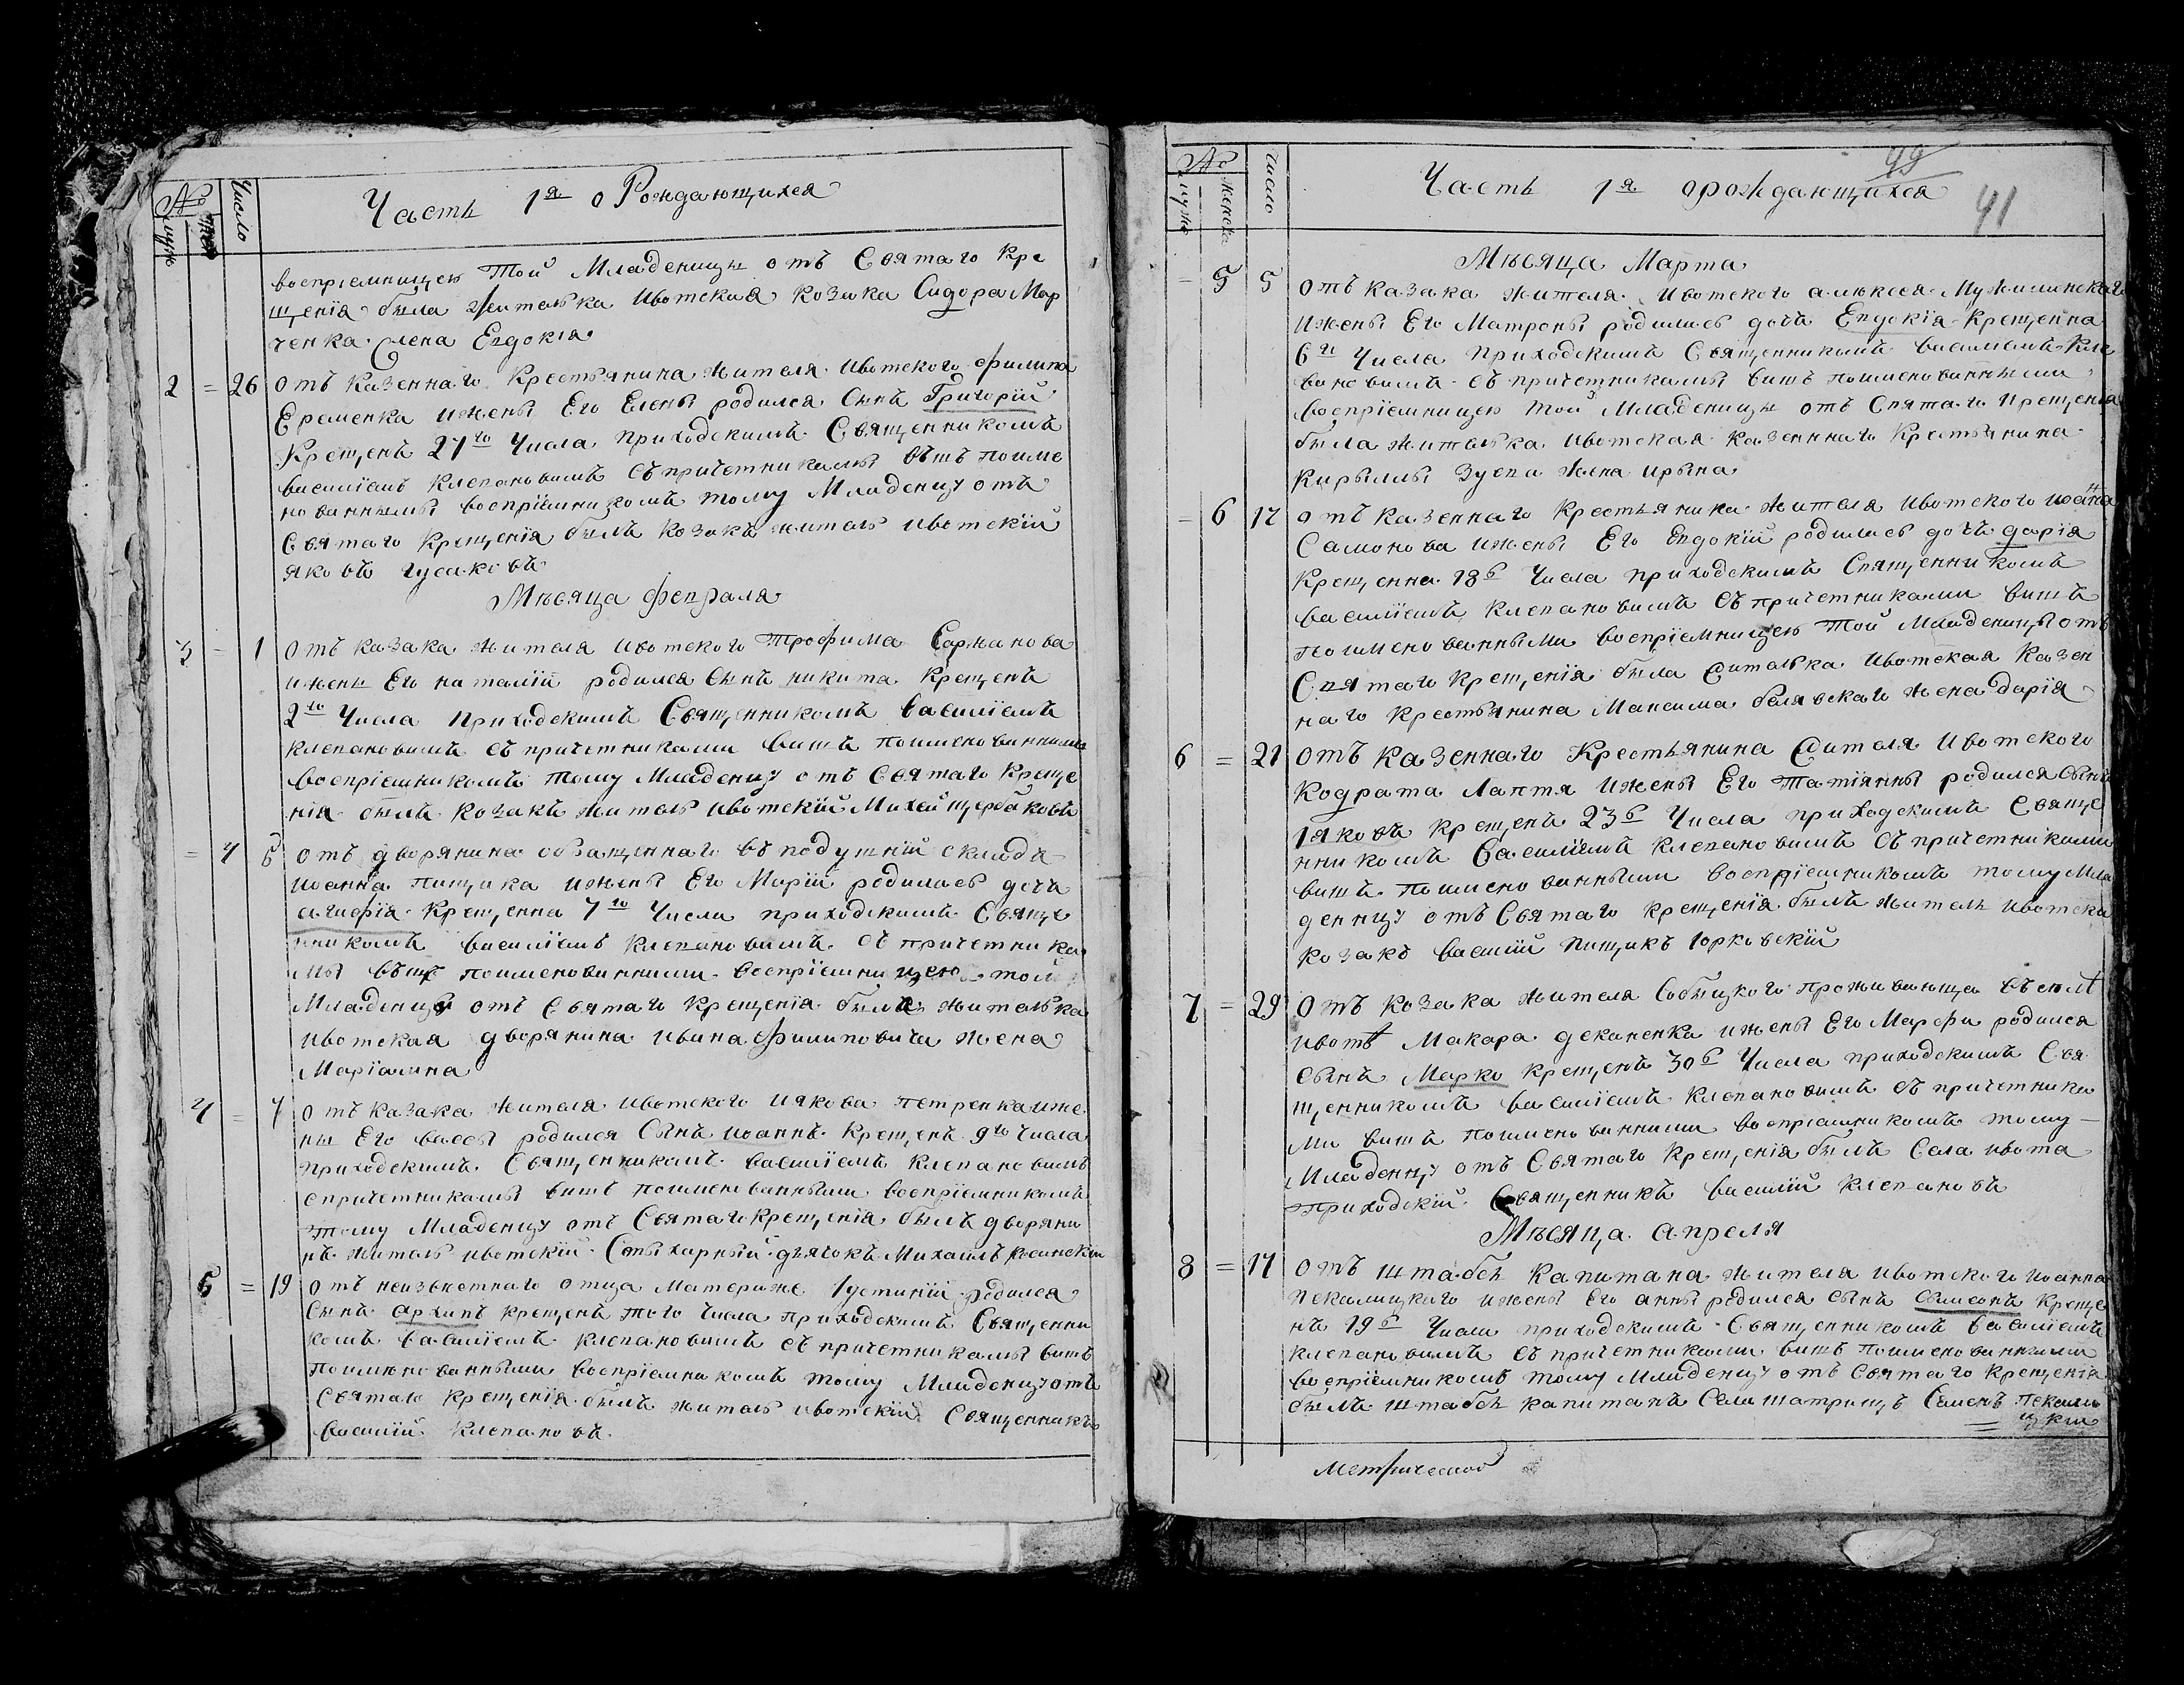 № Число
муж женск
Часть 1я о Рождающихся
воспріемницею той Младеницы отъ Святаго Кре
щенія была жителька Ивотская козака Сидора Мар
ченка жена Евдокія
2 = 26 отъ казеннаго крестьянина жителя Ивотского филипа
Еременка и жены Его Елены родился сынъ Григорій
Крещенъ 27го Числа приходскимъ Священникомъ
василіемъ клепановимъ съ причетниками вышъ поиме
нованнымы воспріемникомъ тому Младенцу отъ
Святаго крещенія былъ козакъ житель ивотскій
яковъ гусаковъ
Мѣсяца февраля
3 = 1 отъ казака жителя ивотского трофима Саржанова
и жены Его наталіи родился сынъ никита Крещенъ
2го Числа приходскимъ Священникомъ василіемъ
клепановимъ съ причетниками вишъ поименованними
воспріемникомъ тому Младенцу отъ Святаго креще
нія былъ козакъ житель ивотскій Михей щербаковъ
= 4 6 отъ дворянина обращеннаго въ подушній окладъ
иоанна пищика и жены Его Маріи родилась дочь
агафія крещенна 7го Числа приходскимъ Свяще
нникомъ василіемъ клепановимъ съ причетника
мы вышъ поименованними воспріемницею той
Младеницы отъ Святаго крещенія была жителька
ивотская дворянина ивана филиповича жена
Маріанна
4 = 7 отъ казака жителя ивотского иякова петренка и же
ны Его васы родился сынъ иоаннъ крещенъ 9го числа
приходскимъ Священникомъ василіемъ клепановимъ
спричетникамы вишъ поименованными воспріемникомъ
тому Младенцу отъ Святаго крещенія былъ дворяни
нъ житель ивотскій Стыхарный дьячокъ Михаилъ
5 = 19 отъ неизвестнаго отца матери же Іустиніи родился
сынъ архипъ крещенъ того числа приходскимъ Священни
комъ василіемъ клепановимъ съ причетникамы вишъ
поименованными воспріемникомъ тому Младенцу отъ
Святаго крещенія былъ житель ивотскій Священникъ
василій клепановъ
№ Число
муж женска
Часть 1я о рождающихся
49
41
Мѣсяца Марта
= 5 5 отъ казака жителя ивотского алексея Мужилинскаго
и жены Его Матроны родилась дочь Евдокія крещенна
6го Числа приходскимъ Священникомъ василіемъ клепа
новимъ съ причетникамы вишъ поименованными
воспріемницею той Младеницы отъ Святаго крещенія
была жителька ивотская казеннаго крестьянина
кирыллы Зуева жена ирына
= 6 17 отъ казеннаго крестьянина жителя ивотского иоанна
Самонова и жены Его Евдокіи родилась дочь дарія
крещенна 18го Числа приходскимъ Священникомъ
василіемъ клепановимъ съ причетниками вишъ
поименованными воспріемницею той Младеницы отъ
Святаго крещенія была жителька ивотская казен
наго крестьянина Максима белявскаго жена дарія
6 = 21 отъ казеннаго крестьянина жителя ивотского
кодрата лаптя и жены Его татіянны родился сынъ
Іяковъ крещенъ 23го Числа приходскимъ Свяще
нникомъ василіемъ клепановимъ съ причетниками
вишъ поименованными воспріемникомъ тому Мла
денцу отъ Святаго крещенія былъ житель ивотски
козакъ василій пищикъ юрковскій
7 = 29 отъ козака жителя Собыцкого проживающа въ селѣ
ивотѣ Макара деканенка и жены Его Марфи родился
сынъ Марко крещенъ 30го Числа приходскимъ Свя
щенникомъ василіемъ клепановимъ съ причетника
ми вишъ поименованними воспріемникомъ тому
Младенцу отъ Святаго крещенія былъ Села ивота
приходскій Священникъ василій клепановъ
Мѣсяца апреля
8 = 17 отъ штабсъ капитана жителя ивотского иоанна
пекалицкаго и жены Его анны родился сынъ Сымеонъ креще
нъ 19го Числа приходскимъ Священникомъ василіемъ
клепановимъ съ причетниками вишъ поименованными
воспріемникомъ тому Младенцу отъ Святаго крещенія
былъ штабсъ капитанъ Села шатрищъ Семенъ пекали
цкій
Метрической